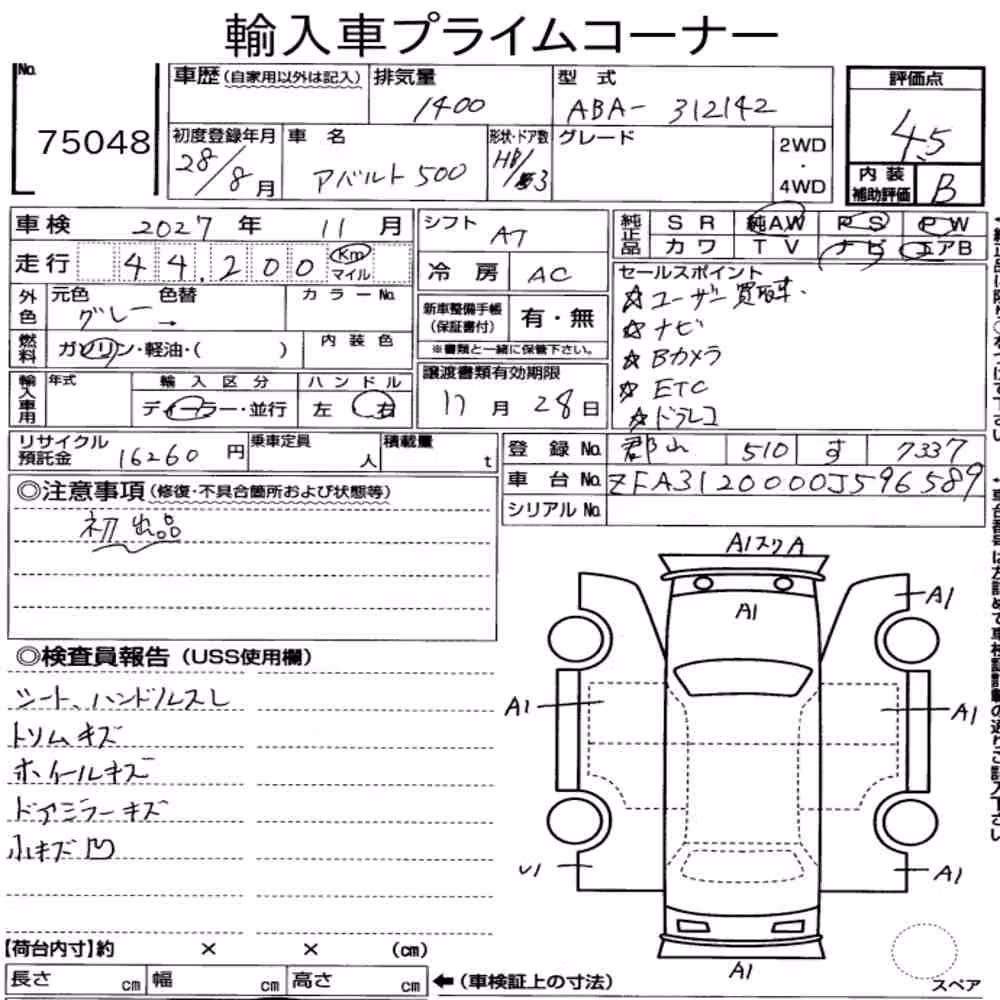 輸入車プライムコーナー
No. 75048
車歴(自家用以外は記入)
排気量 1400
型式 ABA- 312142
評価点 4.5
初度登録年月 28/8月
車名 アバルト500
形状・ドア数 HB/3
グレード
2WD・4WD
内装補助評価 B
車検 2027年 11月
シフト AT
純正品 SR 純AW PS PW
カワ TV ナビ エアB
走行 44,200 Km マイル
冷房 AC
外色 元色 グレー → 色替
カラーNo.
新車整備手帳(保証書付) 有・無
※書類と一緒に保管下さい。
燃料 ガソリン・軽油・( )
内装色
セールスポイント
☆ユーザー買取車.
☆ナビ
☆Bカメラ
☆ETC
☆ドラレコ
輸入車用 年式
輸入区分 ディーラー・並行
ハンドル 左 右
譲渡書類有効期限 11月28日
リサイクル預託金 16260円
乗車定員 人
積載量 t
登録No. 郡山 510 す 7337
車台No. ZFA3120000J596589
シリアルNo.
◎注意事項(修復・不具合箇所および状態等)
初出品
◎検査員報告(USS使用欄)
シート、ハンドルスレ
トリムキズ
ホイールキズ
ドアミラーキズ
小キズ凹
A1スリA
A1
A1
A1
A1
U1
A1
A1
スペア
【荷台内寸】約 × × (cm)
長さ cm 幅 cm 高さ cm ←(車検証上の寸法)